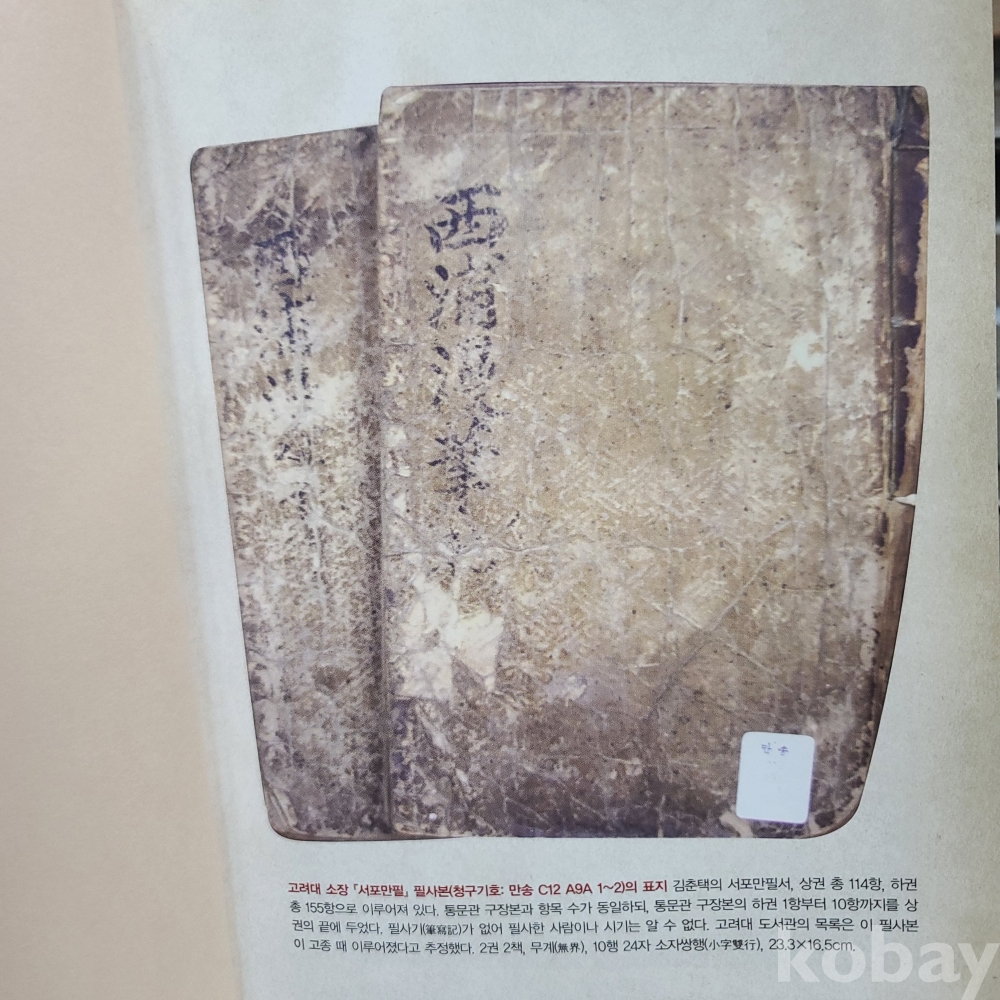 西浦漫筆
만송
고려대 소장 『서포만필』 필사본(청구기호: 만송 C12 A9A 1~2)의 표지 김춘택의 서포만필서, 상권 총 114항, 하권
총 155항으로 이루어져 있다. 통문관 구장본과 항목 수가 동일하되, 통문관 구장본의 하권 1항부터 10항까지를 상
권의 끝에 두었다. 필사기(筆寫記)가 없어 필사한 사람이나 시기는 알 수 없다. 고려대 도서관의 목록은 이 필사본
이 고종 때 이루어졌다고 추정했다. 2권 2책, 무계(無界), 10행 24자 소자쌍행(小字雙行), 23.3×16.5cm.
kobay